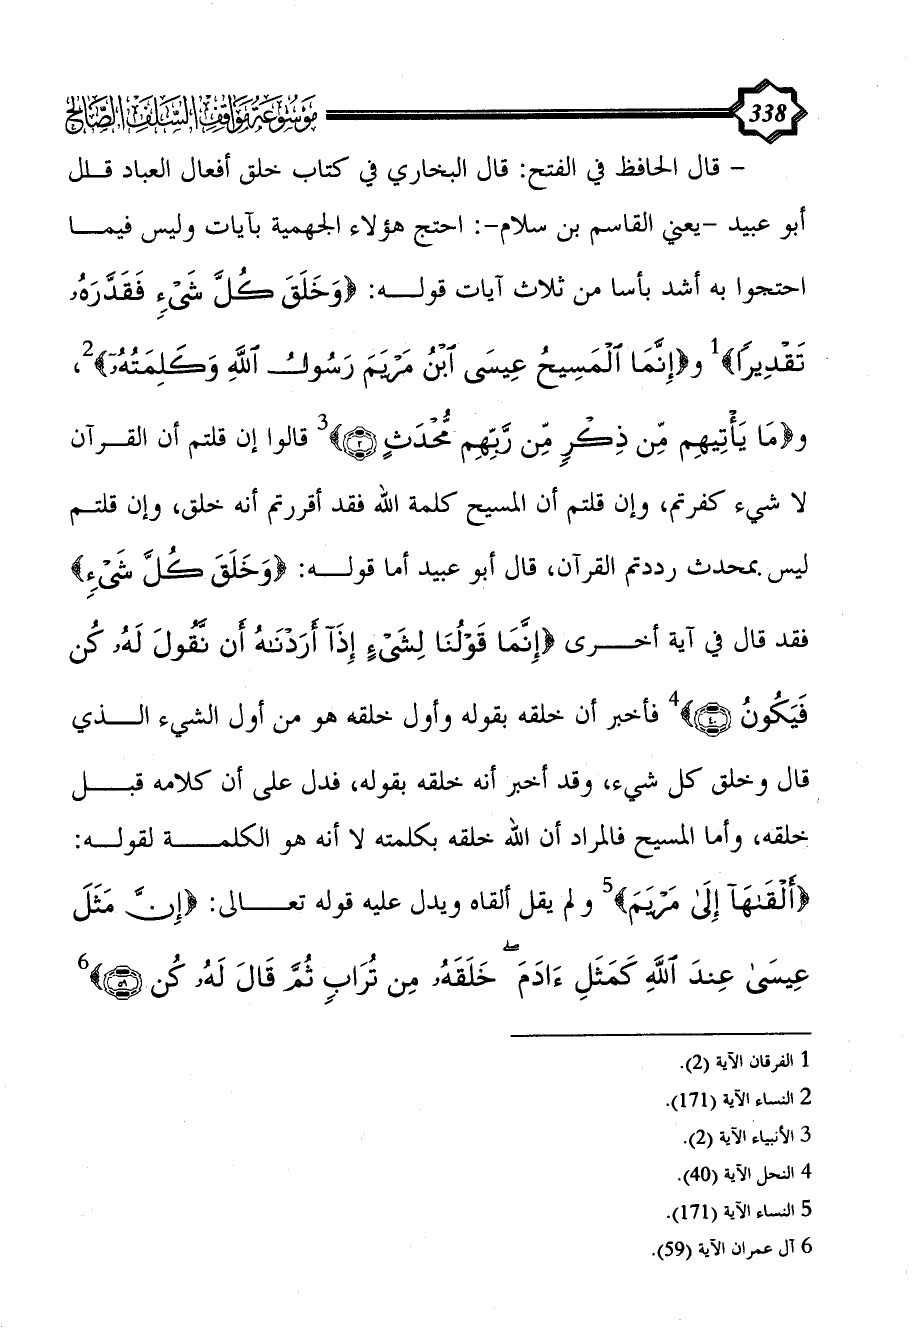 موسوعة مواقف السلف الصالح 338
- قال الحافظ في الفتح: قال البخاري في كتاب خلق أفعال العباد قلل
أبو عبيد -يعني القاسم بن سلام-: احتج هؤلاء الجهمية بآيات وليس فيمـا
احتجوا به أشد بأسا من ثلاث آيات قولـه: ﴿وَخَلَقَ كُلَّ شَيْءٍ فَقَدَّرَهُۥ
تَقْدِيرًا﴾1 و﴿إِنَّمَا ٱلْمَسِيحُ عِيسَى ٱبْنُ مَرْيَمَ رَسُولُ ٱللَّهِ وَكَلِمَتُهُۥٓ﴾2،
و﴿مَا يَأْتِيهِم مِّن ذِكْرٍ مِّن رَّبِّهِم مُّحْدَثٍ ٢﴾3 قالوا إن قلتم أن القـرآن
لا شيء كفرتم، وإن قلتم أن المسيح كلمة الله فقد أقررتم أنه خلق، وإن قلتـم
ليس بمحدث رددتم القرآن، قال أبو عبيد أما قولـه: ﴿وَخَلَقَ كُلَّ شَيْءٍ﴾
فقد قال في آية أخـرى ﴿إِنَّمَا قَوْلُنَا لِشَيْءٍ إِذَآ أَرَدْنَـٰهُ أَن نَّقُولَ لَهُۥ كُن
فَيَكُونُ ٤٠﴾4 فأخبر أن خلقه بقوله وأول خلقه هو من أول الشيء الـذي
قال وخلق كل شيء، وقد أخبر أنه خلقه بقوله، فدل على أن كلامه قبـل
خلقه، وأما المسيح فالمراد أن الله خلقه بكلمته لا أنه هو الكلمـة لقولـه:
﴿أَلْقَىٰهَآ إِلَىٰ مَرْيَمَ﴾5 ولم يقل ألقاه ويدل عليه قوله تعـالى: ﴿إِنَّ مَثَلَ
عِيسَىٰ عِندَ ٱللَّهِ كَمَثَلِ ءَادَمَ ۖ خَلَقَهُۥ مِن تُرَابٍ ثُمَّ قَالَ لَهُۥ كُن ٥٩﴾6
1 الفرقان الآية (2).
2 النساء الآية (171).
3 الأنبياء الآية (2).
4 النحل الآية (40).
5 النساء الآية (171).
6 آل عمران الآية (59).